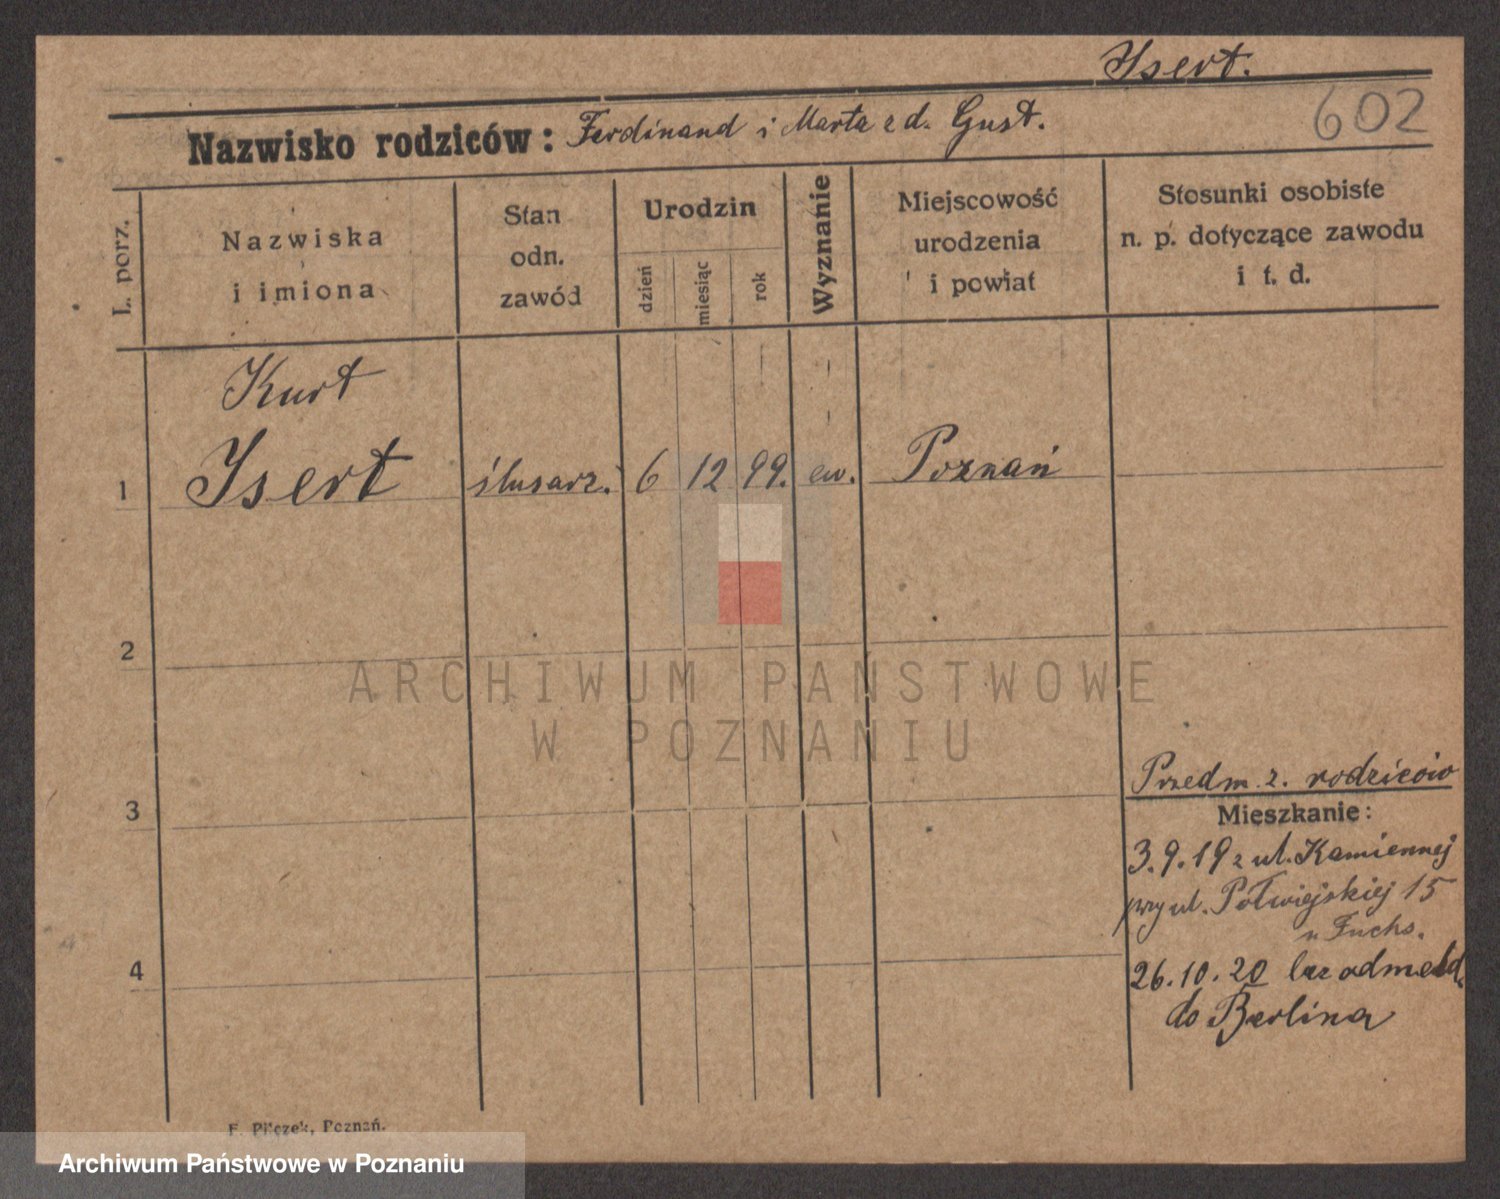 Ysert.
602
Nazwisko rodziców: Ferdinand i Marta z d. Gust.
L. porz.
Nazwiska
i imiona
Stan
odn.
zawód
Urodzin
dzień
miesiąc
rok
Wyznanie
Miejscowość
urodzenia
i powiat
Stosunki osobiste
n. p. dotyczące zawodu
i t. d.
Kurt
1 Ysert ślusarz. 6 12 99. ew. Poznań
2
3
4
Przedm. z. rodziców
Mieszkanie:
3.9.19 z ul. Kamiennej
przy ul. Półwiejskiej 15
u Fuchs.
26.10.20 bez odmeld.
do Berlina
F. Pilczek, Poznań.
ARCHIWUM PAŃSTWOWE
W POZNANIU
Archiwum Państwowe w Poznaniu